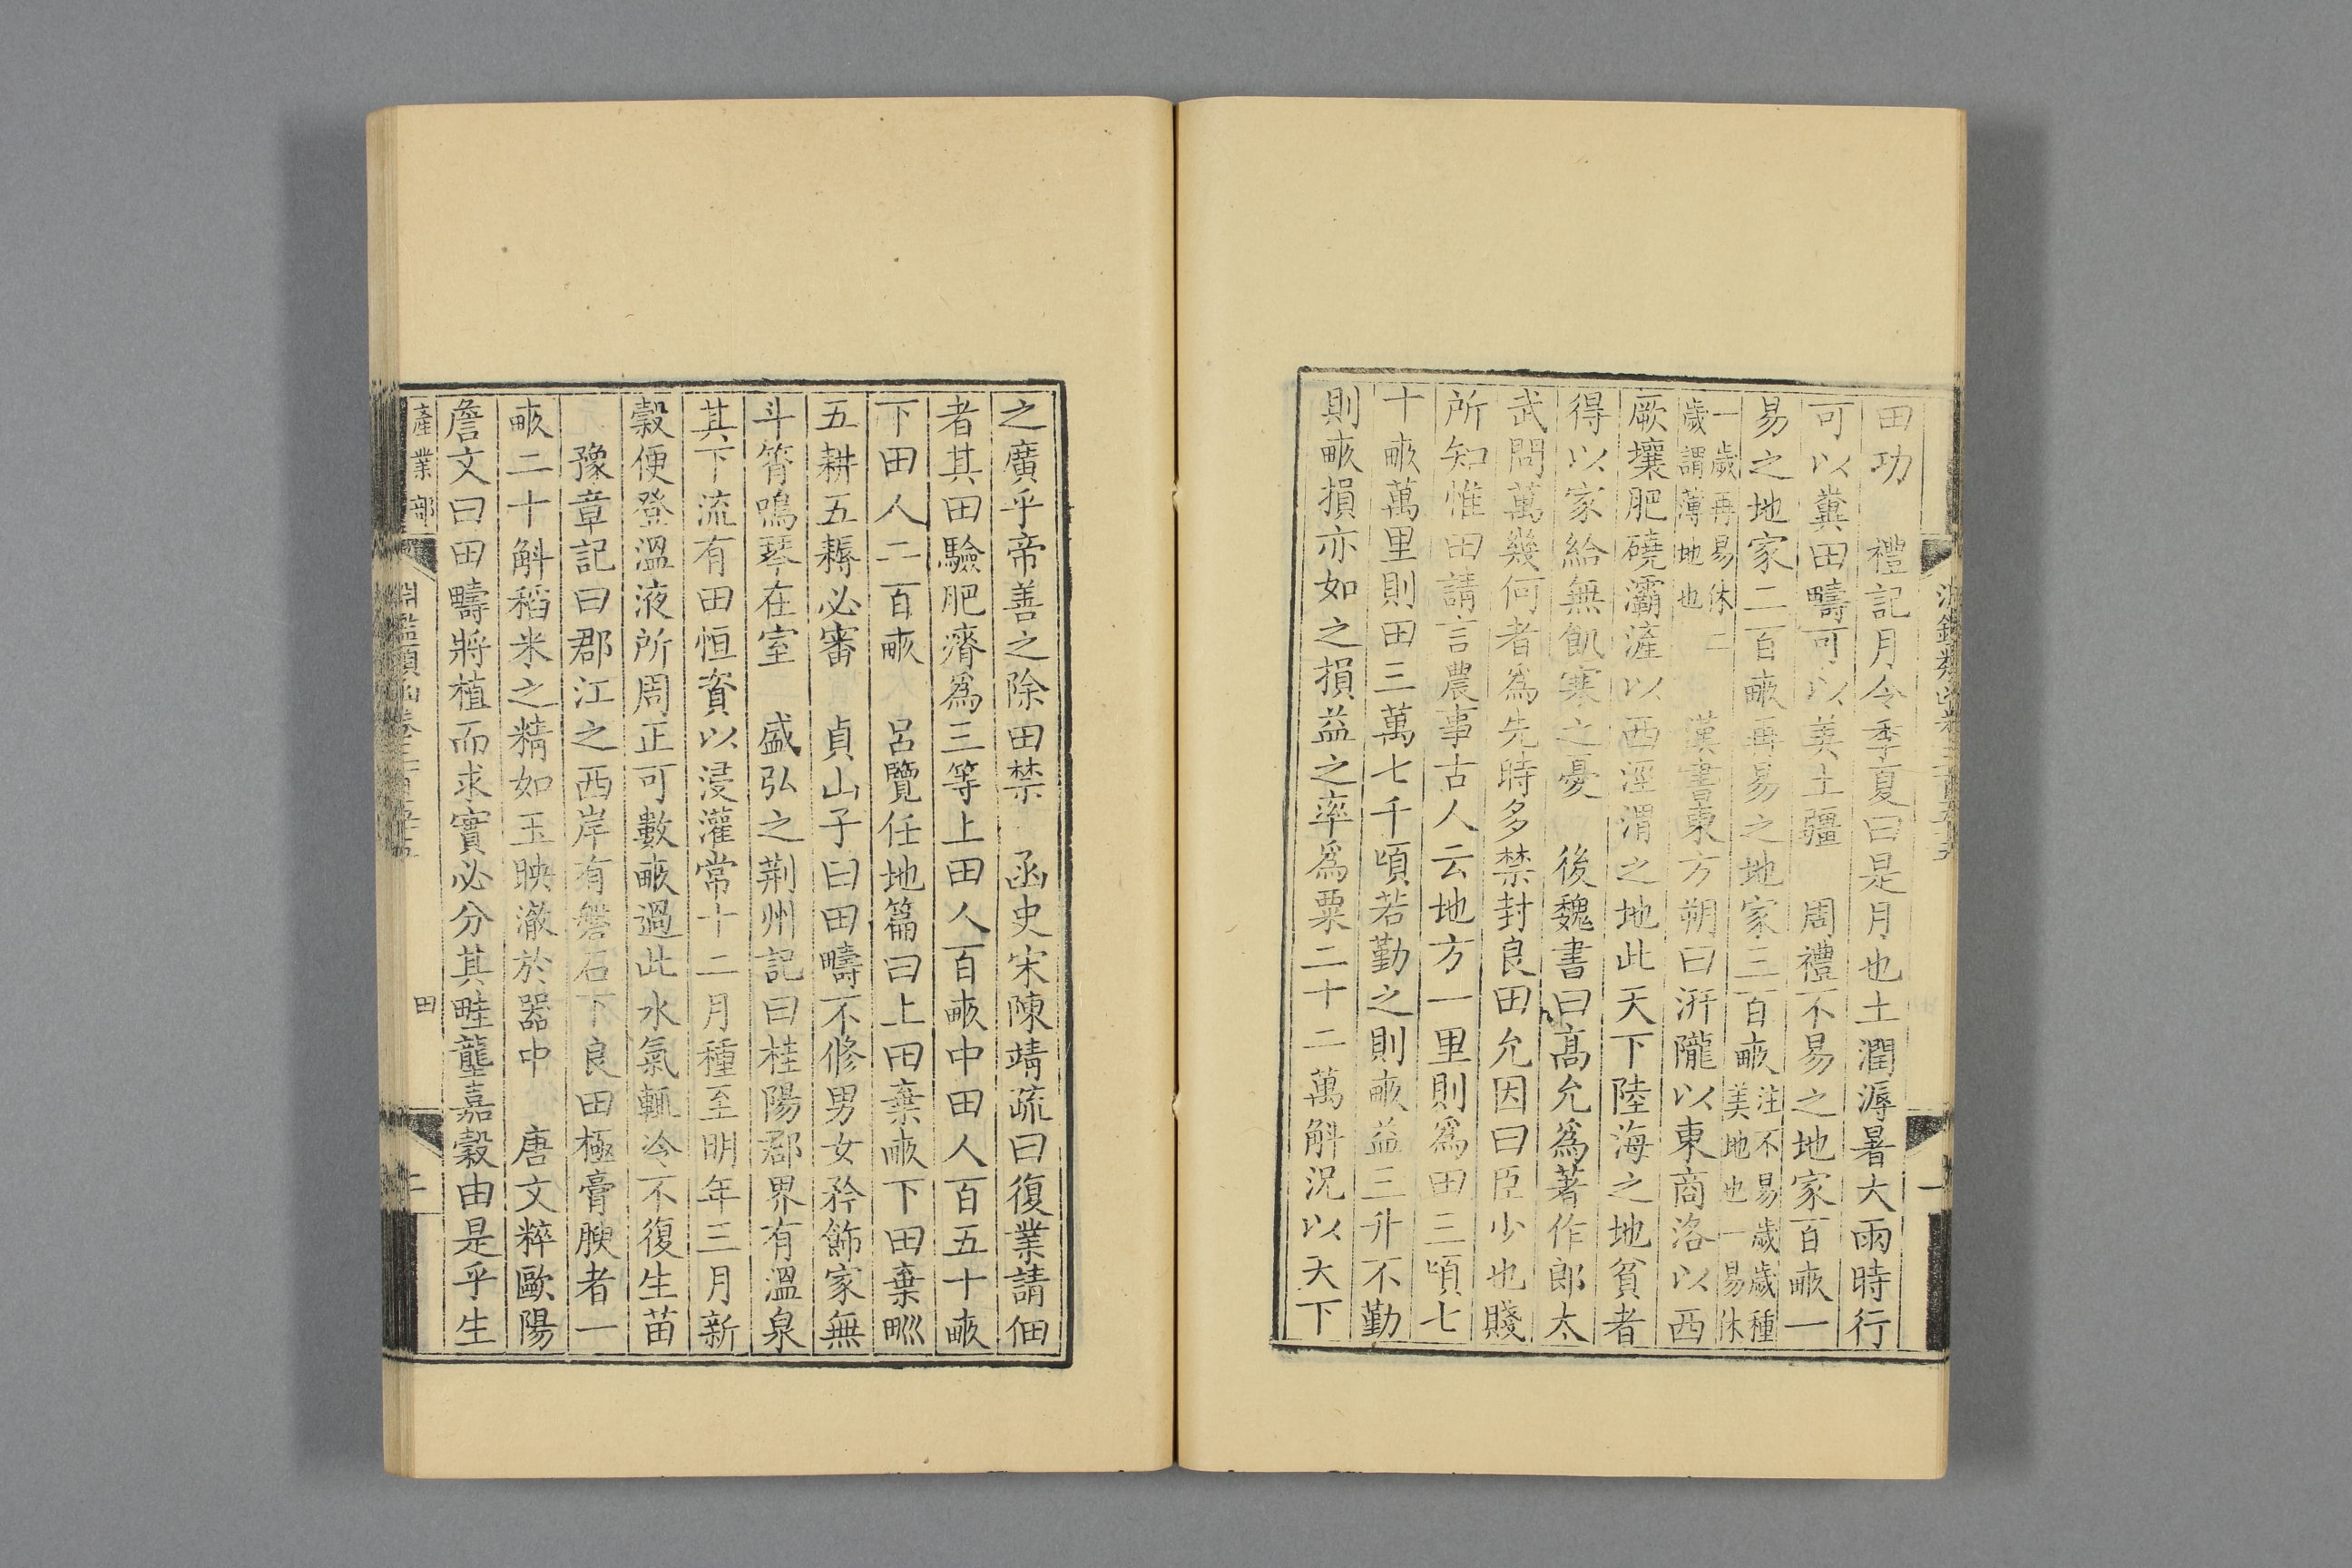 田功　禮記月令季夏曰是月也土潤溽暑大雨時行
可以糞田疇可以美土疆　周禮不易之地家百畮一
易之地家二百畮再易之地家三百畮注不易歲歲種
美地也一易休
一歲再易休二
歲謂薄地也　漢書東方朔曰汧隴以東商洛以西
厥壤肥磽灞滻以西涇渭之地此天下陸海之地貧者
得以家給無飢寒之憂　後魏書曰高允為著作郎太
武問萬幾何者為先時多禁封良田允因曰臣少也賤
所知惟田請言農事古人云地方一里則為田三頃七
十畮萬里則田三萬七千頃若勤之則畮益三升不勤
則畮損亦如之損益之率為粟二十二萬斛況以天下
之廣乎帝善之除田禁　函史宋陳靖疏曰復業請佃
者其田驗肥瘠為三等上田人百畮中田人百五十畮
下田人二百畮　呂覽任地篇曰上田棄畮下田棄甽
五耕五耨必審　貞山子曰田疇不修男女矜飾家無
斗筲鳴琴在室　盛弘之荆州記曰桂陽郡界有溫泉
其下流有田恒資以浸灌常十二月種至明年三月新
穀便登溫液所周正可數畮過此水氣輒冷不復生苗
豫章記曰郡江之西岸有磐石下良田極膏腴者一
畮二十斛稻米之精如玉映澈於器中　唐文粹歐陽
詹文曰田疇將植而求實必分其畦壟嘉穀由是乎生
產業部
淵鑑類函卷三百五十五
田
二